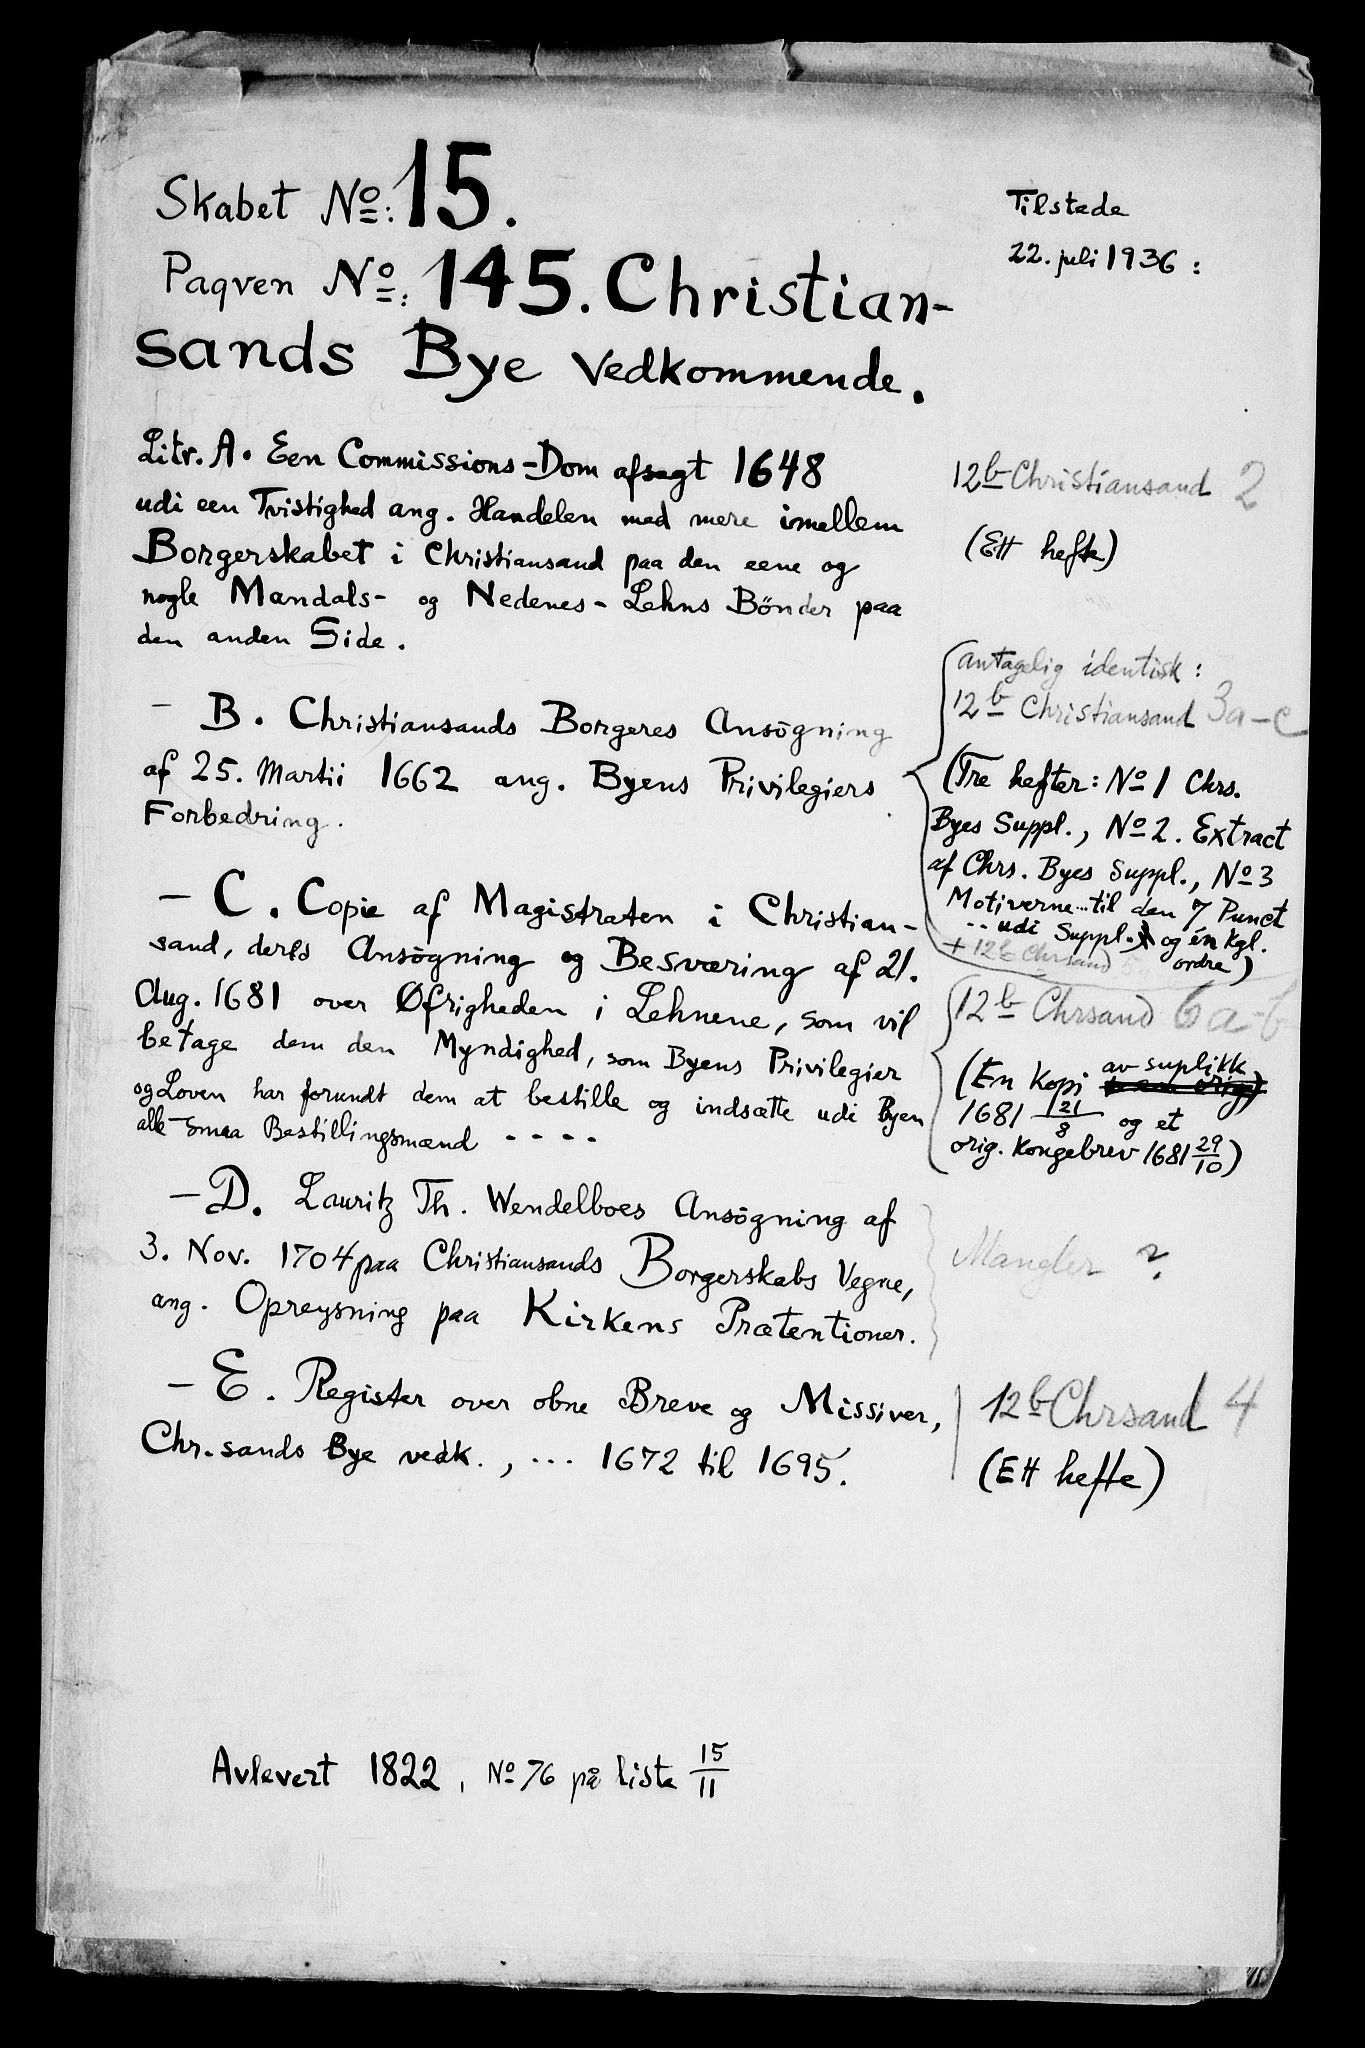 Skabet No: 15.
Paqven No: 145. Christian-
sands Bye Vedkommende.
Tilstede
22. juli 1936:
Litr. A. Een Commissions-Dom afsagt 1648
udi een Tvistighed ang. Handelen med mere imellem
Borgerskabet i Christiansand paa den eene og
nogle Mandals- og Nedenes- Lehns Bönder paa
den anden Side.
12b Christiansand 2
(Ett hefte)
- B. Christiansands Borgeres Ansögning
af 25. Martii 1662 ang. Byens Privilegiers
Forbedring.
antagelig identisk:
12b Christiansand 3a-c
(Tre hefter: No 1 Chrs.
Byes Suppl., No 2. Extract
af Chrs. Byes Suppl., No 3
Motiverne... til den 7 Punct
.. udi Suppl.) og én kgl.
ordre)
+ 12b Chrsand
- C. Copie af Magistraten i Christian-
sand, deres Ansögning og Besværing af 21.
Aug. 1681 over Øfrigheden i Lehnene, som vil
betage dem den Myndighed, som Byens Privilegier
og Loven har forundt dem at bestille og indsætte udi Byen
alle smaa Bestillingsmænd - - - -
12b Chrsand 6a-b
(En kopi av suplikk
1681 21/8 og et
orig. kongebrev 1681 29/10)
- D. Lauritz Th. Wendelboes Ansögning af
3. Nov. 1704 paa Christiansands Borgerskabs Vegne,
ang. Opreysning paa Kirkens Prætentioner.
Mangler ?
- E. Register over obne Breve og Missiver,
Chr.sands Bye vedk., ... 1672 til 1695.
12b Chrsand 4
(Ett hefte)
Avlevert 1822, No 76 på liste 15/11